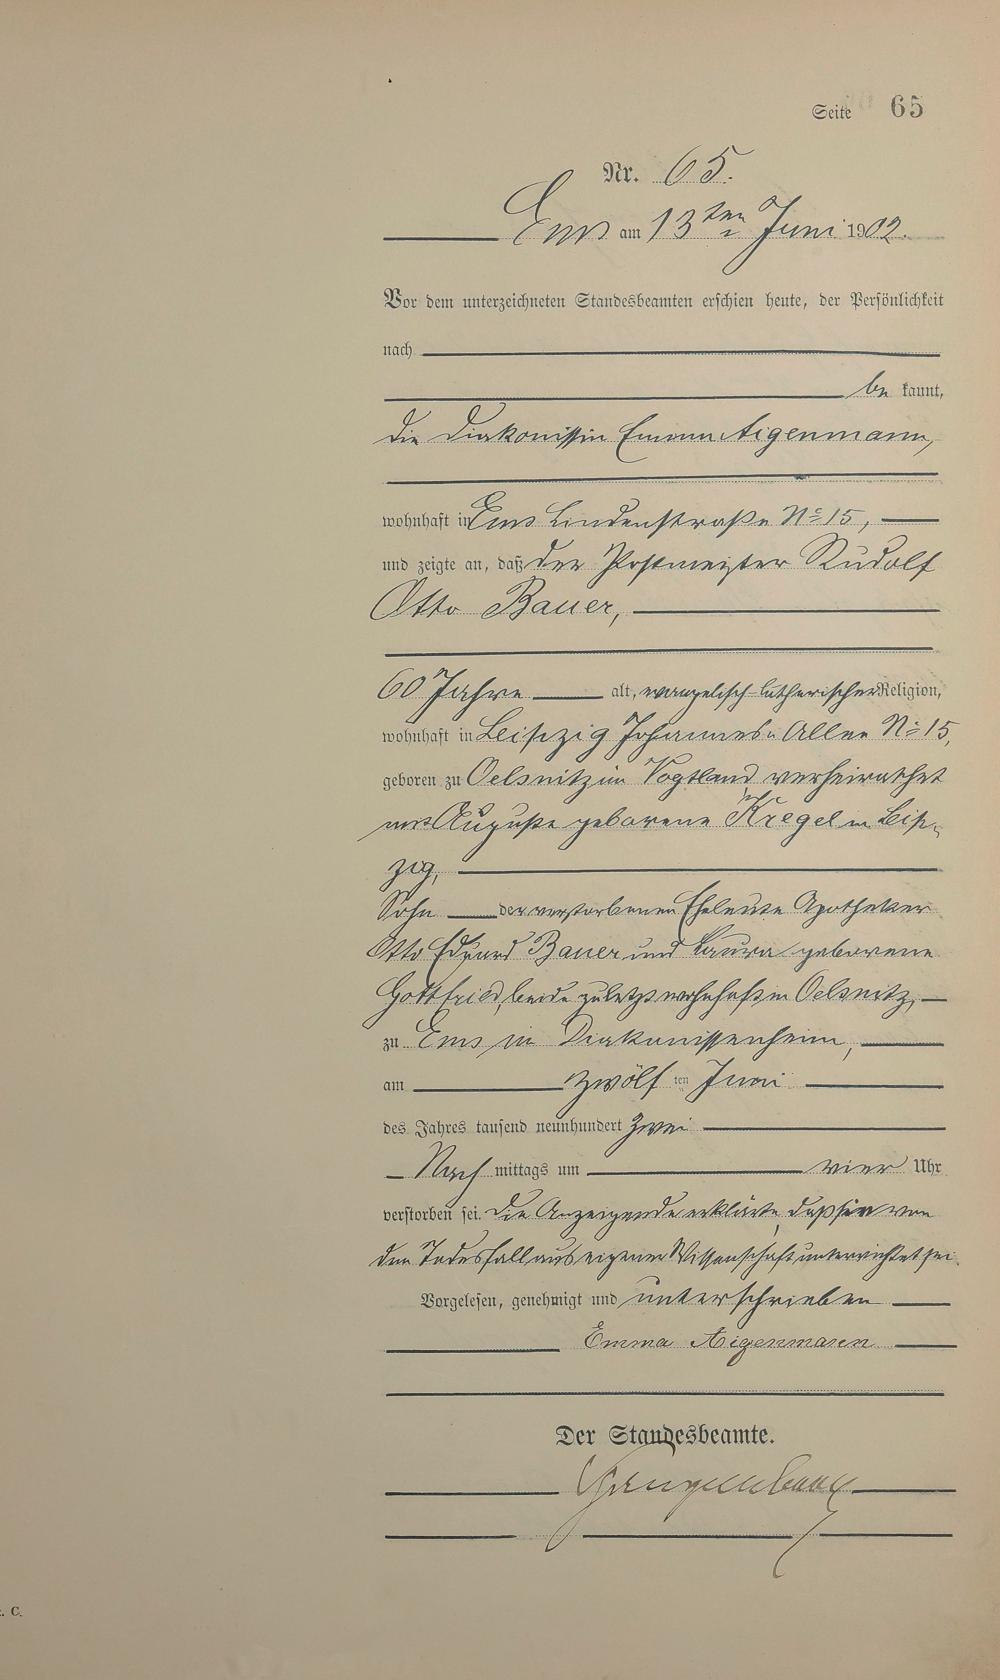 Seite 65
Nr. 65.
Ems am 13ten Juni 1902.
Vor dem unterzeichneten Standesbeamten erschien heute, der Persönlichkeit
nach
be kannt,
die Diakonissin Emma Aigenmann,
wohnhaft in Ems Lindenstraße No 15,
und zeigte an, daß der Postmeister Rudolf
Otto Bauer,
60 Jahre alt, evangelisch-lutherischer Religion,
wohnhaft in Leipzig Johannes-Allee No 15,
geboren zu Oelsnitz im Vogtland, verheirathet
mit Auguste geborene Kregel in Leip-
zig,
Sohn der verstorbenen Eheleute Apotheker
Otto Eduard Bauer und Laura geborene
Gottfried, beide zuletzt wohnhaft in Oelsnitz,
zu Ems im Diakonissenheim,
am zwölf ten Juni
des Jahres tausend neunhundert zwei
Nach mittags um vier Uhr
verstorben sei. Die Anzeigende erklärte, daß sie von
dem Todesfall aus eigener Wissenschaft unterrichtet sei.
Vorgelesen, genehmigt und unterschrieben
Emma Aigenmann
Der Standesbeamte.
. C.